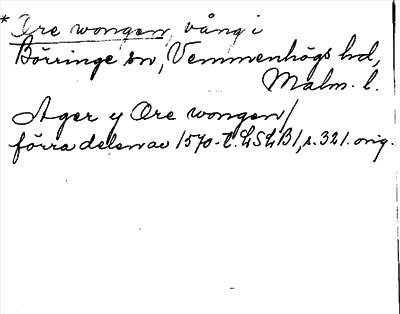 * Ore wongen, vång i
Börringe sn, Vemmenhögs hd,
Malm. l.
Ager y Ore wongen/
förra delen av 1570-t. LSLB1, s. 321. orig.